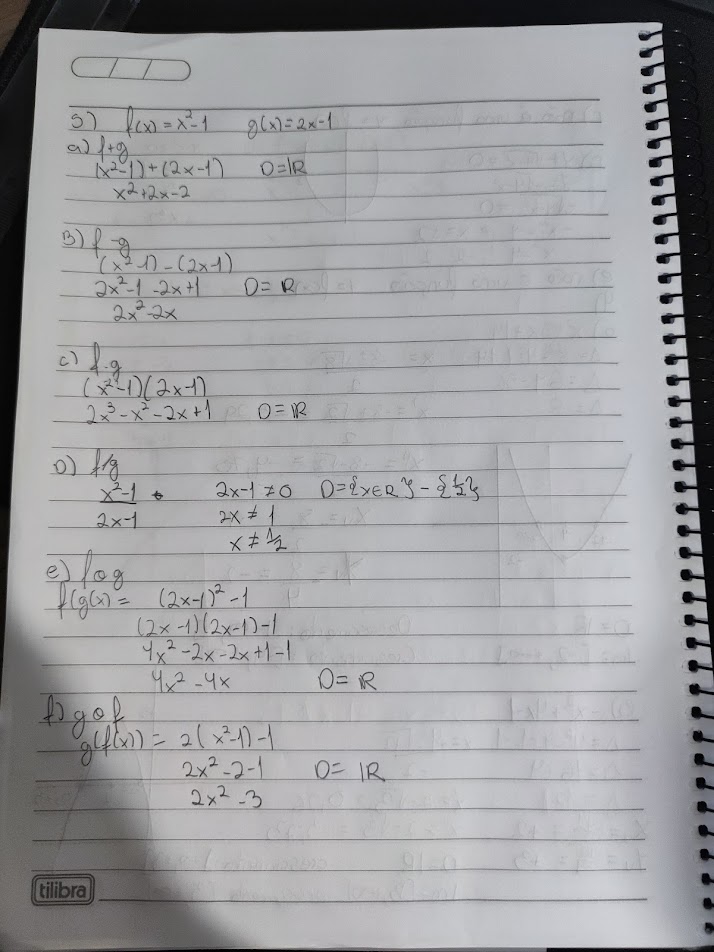 3) f(x) = x²-1 g(x) = 2x-1
a) f+g
(x²-1)+(2x-1) D=ℝ
x²+2x-2
B) f-g
(x²-1)-(2x-1)
2x²-1-2x+1 D=ℝ
2x²-2x
c) f.g
(x²-1)(2x-1)
2x³-x²-2x+1 D=ℝ
D) f/g
x²-1 2x-1≠0 D={x∈ℝ}-{½}
2x-1 2x≠1
x≠½
e) fog
f(g(x)= (2x-1)²-1
(2x-1)(2x-1)-1
4x²-2x-2x+1-1
4x²-4x D=ℝ
f) gof
g(f(x))= 2(x²-1)-1
2x²-2-1 D=ℝ
2x²-3
tilibra